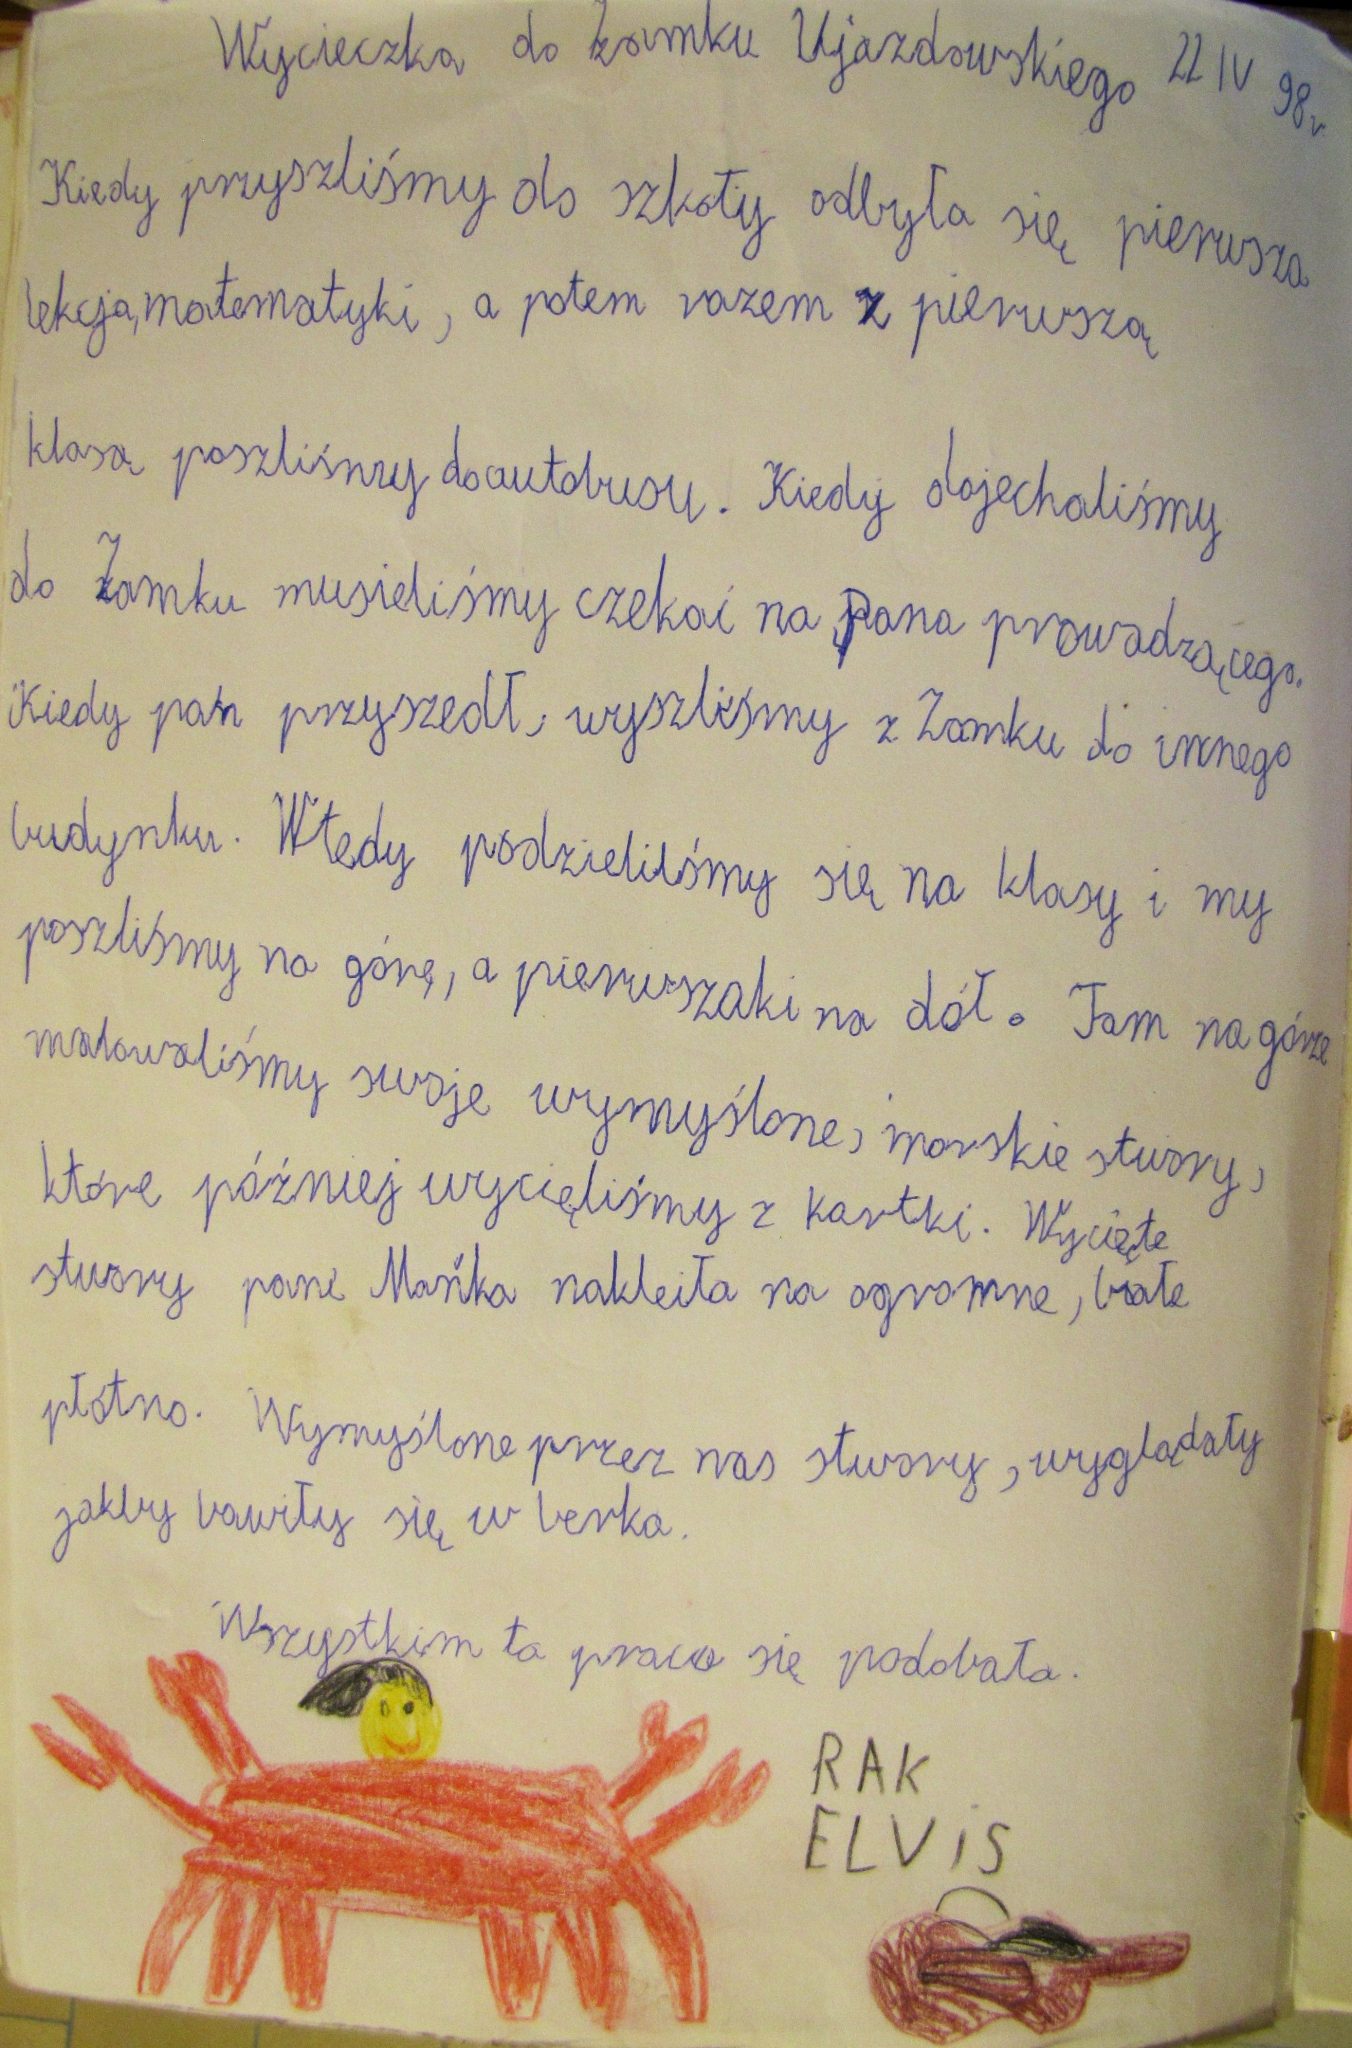 Wycieczka do Zamku Ujazdowskiego 22 IV 98r.
Kiedy przyszliśmy do szkoły odbyła się pierwsza
lekcja, matematyki, a potem razem z pierwszą
klasą poszliśmy do autobusu. Kiedy dojechaliśmy
do Zamku musieliśmy czekać na pana prowadzącego.
Kiedy pan przyszedł, wyszliśmy z Zamku do innego
budynku. Wtedy podzieliliśmy się na klasy i my
poszliśmy na górę, a pierwszaki na dół. Tam na górze
malowaliśmy swoje wymyślone, morskie stwory,
które później wycięliśmy z kartki. Wycięte
stwory pani Mańka nakleiła na ogromne, białe
płótno. Wymyślone przez nas stwory, wyglądały
jakby bawiły się w berka.
Wszystkim ta praca się podobała.
RAK
ELViS